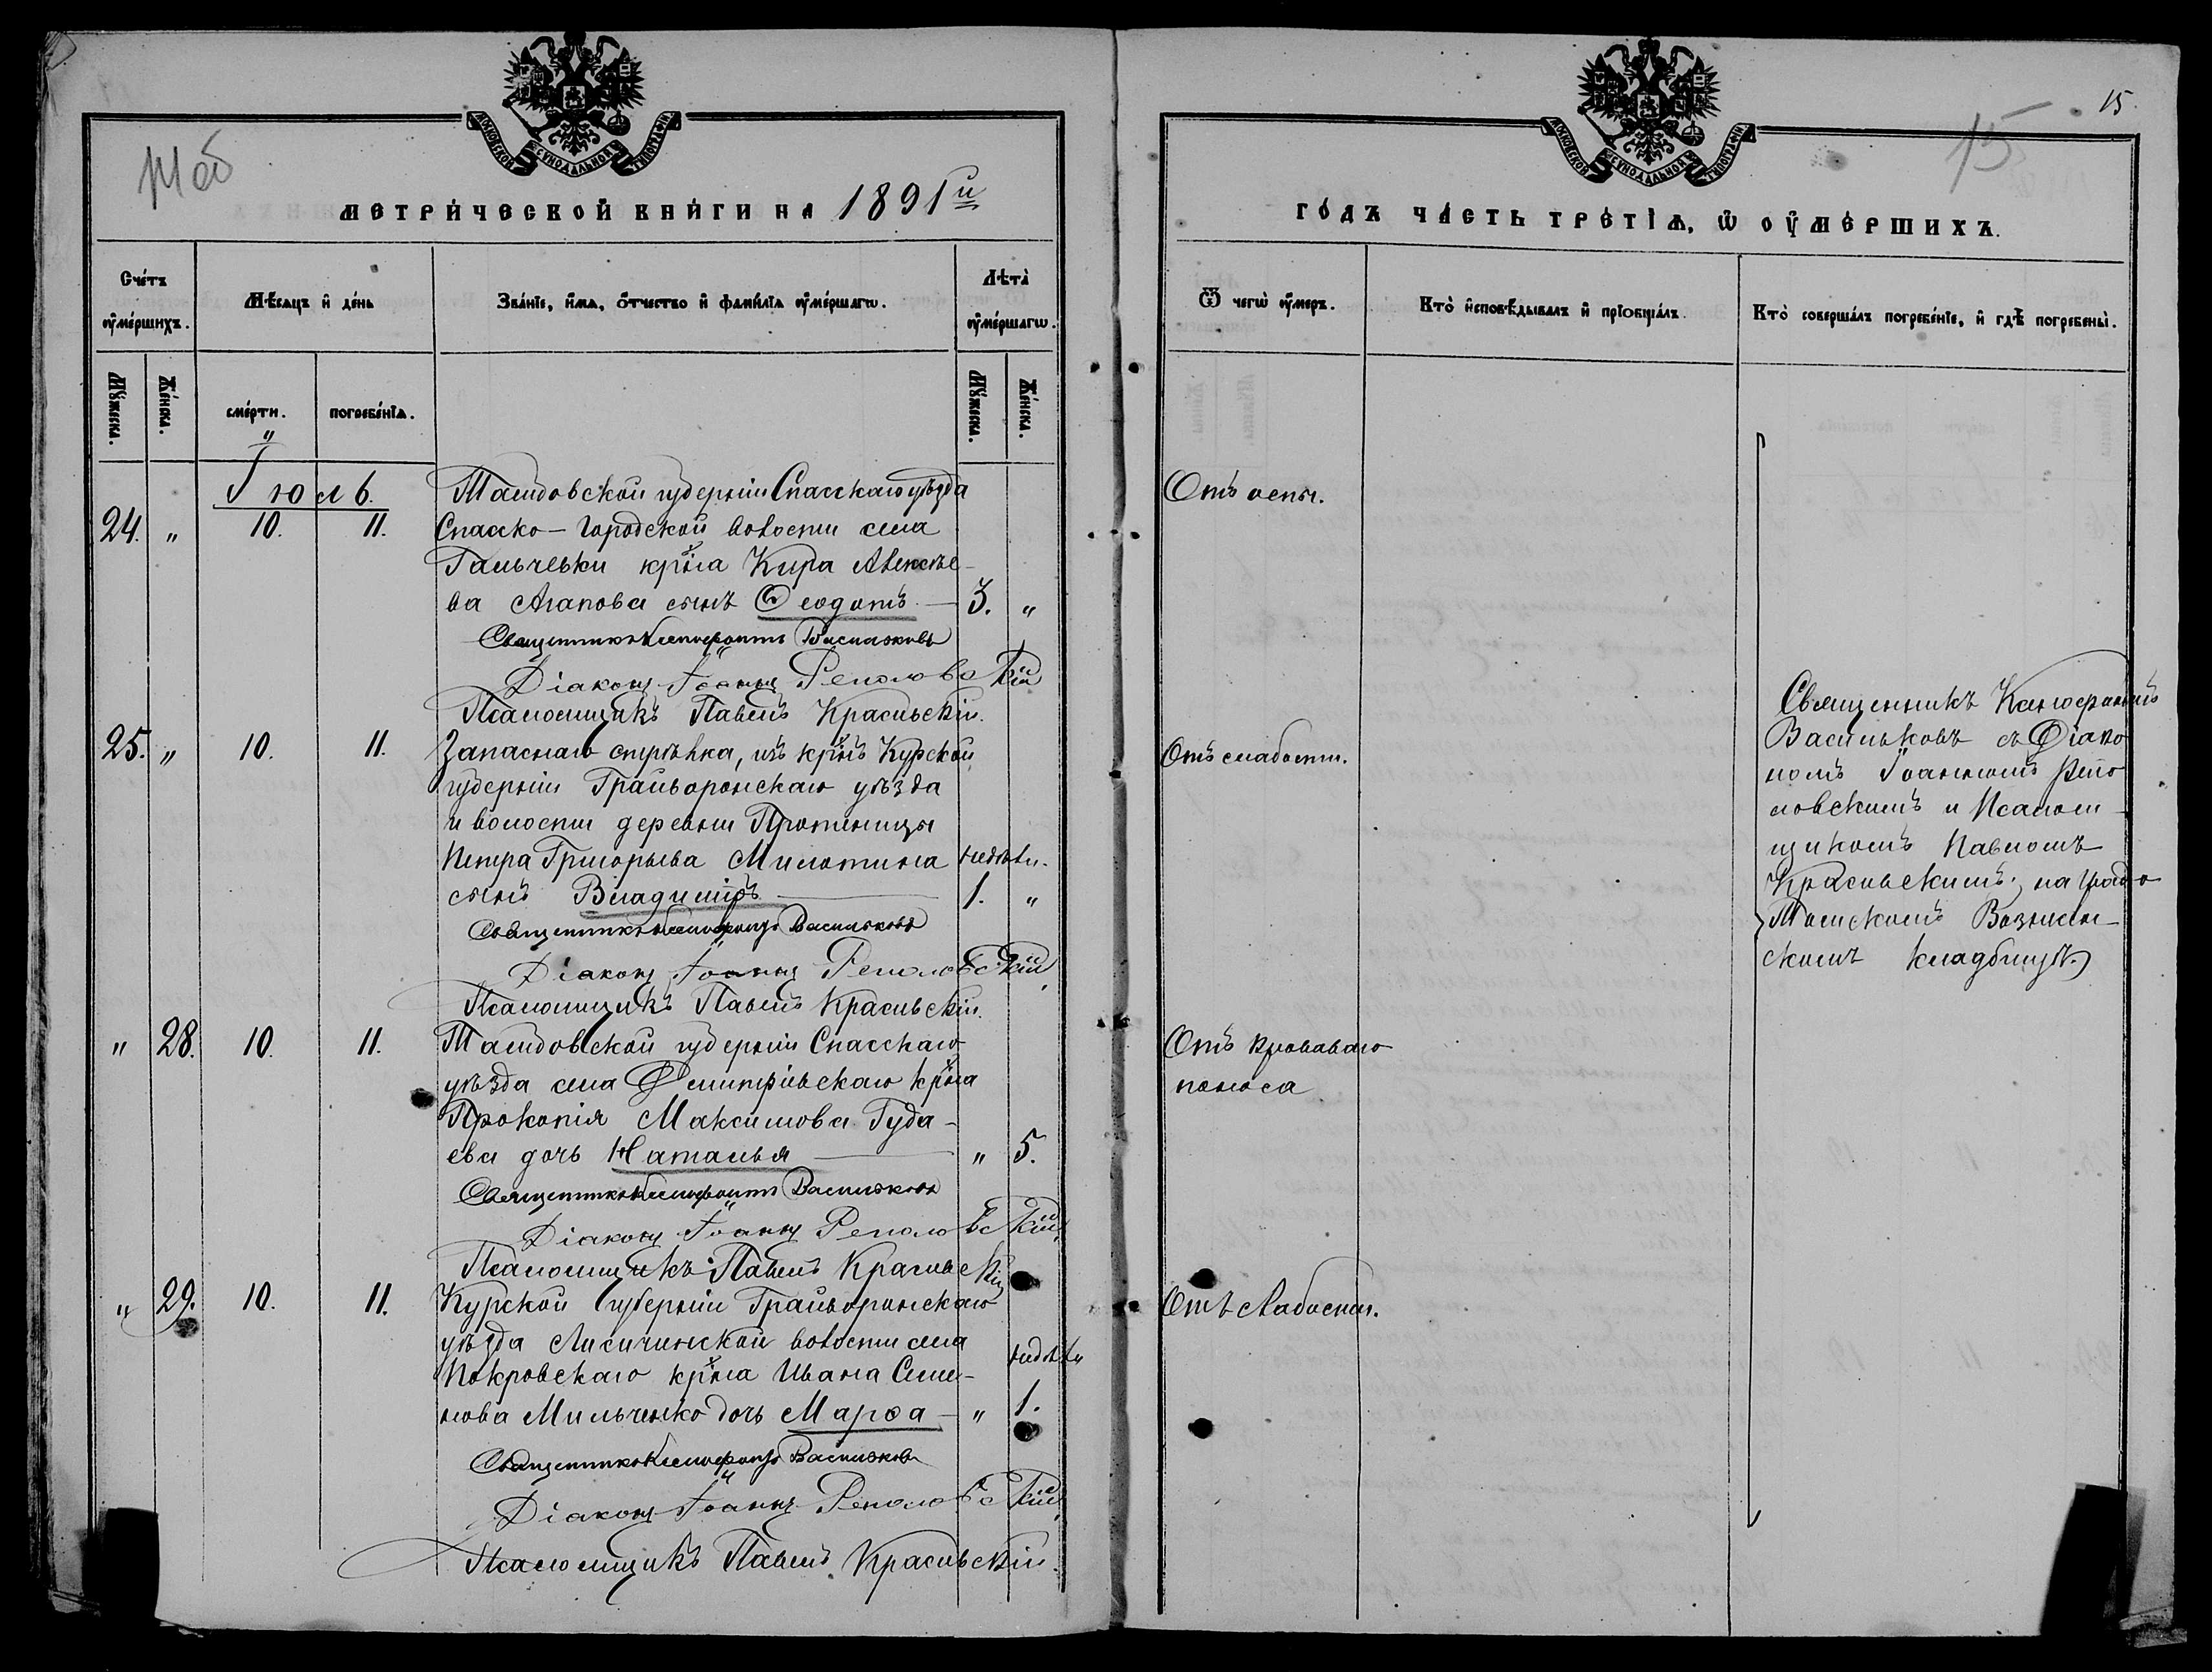 14 об
МОСКОВСКОЙ СѴНОДАЛЬНОЙ ТИПОГРАФІИ
МЕТРИ́ЧЕСКОЙ КНИ́ГИ НА 1891й
Сче́тъ ᲂу҆ме́ршихъ.
Мѣ́сяцъ и҆ де́нь
Зва́нїе, и҆́мѧ, ѻ҆́тчество и҆ фами́лїѧ ᲂу҆ме́ршагѡ.
Лѣта̀ ᲂу҆ме́ршагѡ.
Мꙋ́жеска.
Же́нска.
сме́рти.
погребе́нїѧ.
Мꙋ́жеска.
Же́нска.
Іюль.
Тамбовской губерніи Спасскаго уѣзда
24. " 10. 11. Спасско-Городской волости села
крна Кира Алексѣе-
ва Агапова сынъ Ѳеодотъ — 3. "
Священникъ Ксенофонтъ Васильковъ
Діаконъ Іоаннъ Реполовскій
Псаломщикъ Павелъ Красивскій.
25. " 10. 11. Запаснаго стрѣлка, изъ крнъ Курской
губерніи Грайворонскаго уѣзда
и волости деревни
Петра Григорьева Милотина недѣли.
сынъ Владиміръ — 1. "
Священникъ Ксенофонтъ Васильковъ
Діаконъ Іоаннъ Реполовскій
Псаломщикъ Павелъ Красивскій.
" 28. 10. 11. Тамбовской губерніи Спасскаго
уѣзда села Дмитріевскаго крна
Прокопія Максимова Гуда-
ева дочь Наталья — " 5.
Священникъ Ксенофонтъ Васильковъ
Діаконъ Іоаннъ Реполовскій
Псаломщикъ Павелъ Красивскій
" 29. 10. 11. Курской губерніи Грайворонскаго
уѣзда Лисичинской волости села
Покровскаго крна Ивана Семе- недѣли
нова Мильченко дочь Марѳа — " 1.
Священникъ Ксенофонтъ Васильковъ
Діаконъ Іоаннъ Реполовскій
Псаломщикъ Павелъ Красивскій.
15
15.
МОСКОВСКОЙ СѴНОДАЛЬНОЙ ТИПОГРАФІИ
ГО́ДЪ ЧА́СТЬ ТРЕ́ТІѦ, Ѡ ᲂУ҆МЕ́РШИХЪ.
Ѿ чегѡ̀ ᲂу҆́меръ.
Кто̀ и҆сповѣ́дывалъ и҆ прїобща́лъ.
Кто̀ соверша́лъ погребе́нїе, и҆ гдѣ̀ погребены̀.
Отъ оспы.
Отъ слабости.
Отъ кроваваго
поноса
Отъ слабости.
Священникъ Ксенофонтъ
Васильковъ съ Діако
номъ Іоанномъ Репо
ловскимъ и Псалом-
щикомъ Павломъ
Красивскимъ; на градо
Томскомъ Вознесен-
скомъ кладбищѣ.